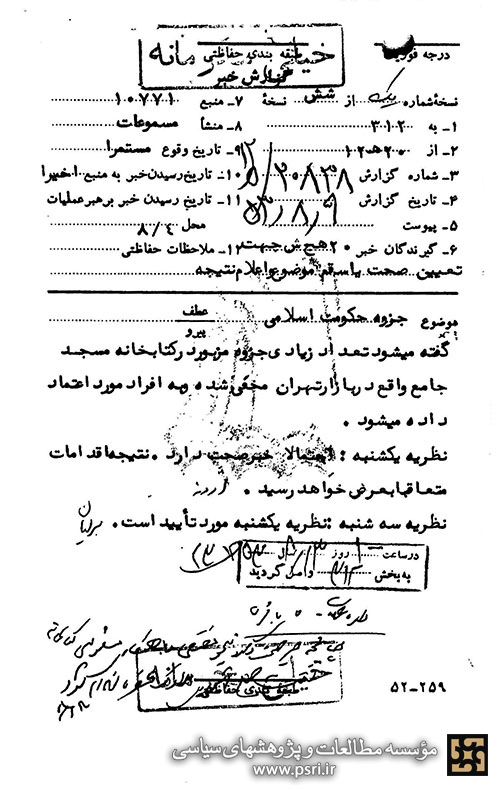 خیلی محرمانه
طبقه بندی حفاظتی
گزارش خبر
درجه فوریت
نسخهٔ شماره یک از شش نسخهٔ
۷- منبع ۱۰۷۷۱
۱- به ۳۱۲
۸- منشأ مسموعات
۲- از ۲۰ ه‍ ۱۲
۹- تاریخ وقوع مستمرا
۳- شماره گزارش ۲۰۸۳۸/
۱۰- تاریخ رسیدن خبر به منبع اخیرا
۴- تاریخ گزارش ۵۳/۸/۹
۱۱- تاریخ رسیدن خبر بر هبر عملیات
۵- پیوست
محل ۸/۴
۶- گیرندگان خبر ۲۰ ه‍ ج ش جهت
۱۲- ملاحظات حفاظتی
تعیین صحت یا سقم موضوع و اعلام نتیجه
موضوع جزوه حکومت اسلامی
عطف
پیرو
گفته میشود تعداد زیادی جزوه مزبور در کتابخانه مسجد
جامع واقع در بازار تهران مخفی شده و به افراد مورد اعتماد
داده میشود .
نظریه یکشنبه : احتمالا خبر صحت دارد . نتیجه اقدامات
متعاقبا بعرض خواهد رسید .
نظریه سه شنبه : نظریه یکشنبه مورد تأیید است .
در ساعت ۱۰ روز
به بخش ۳۱۲ واصل گردید
خیلی محرمانه
طبقه بندی حفاظتی
۵۲-۲۵۹
مؤسسه مطالعات و پژوهشهای سیاسی
www.psri.ir